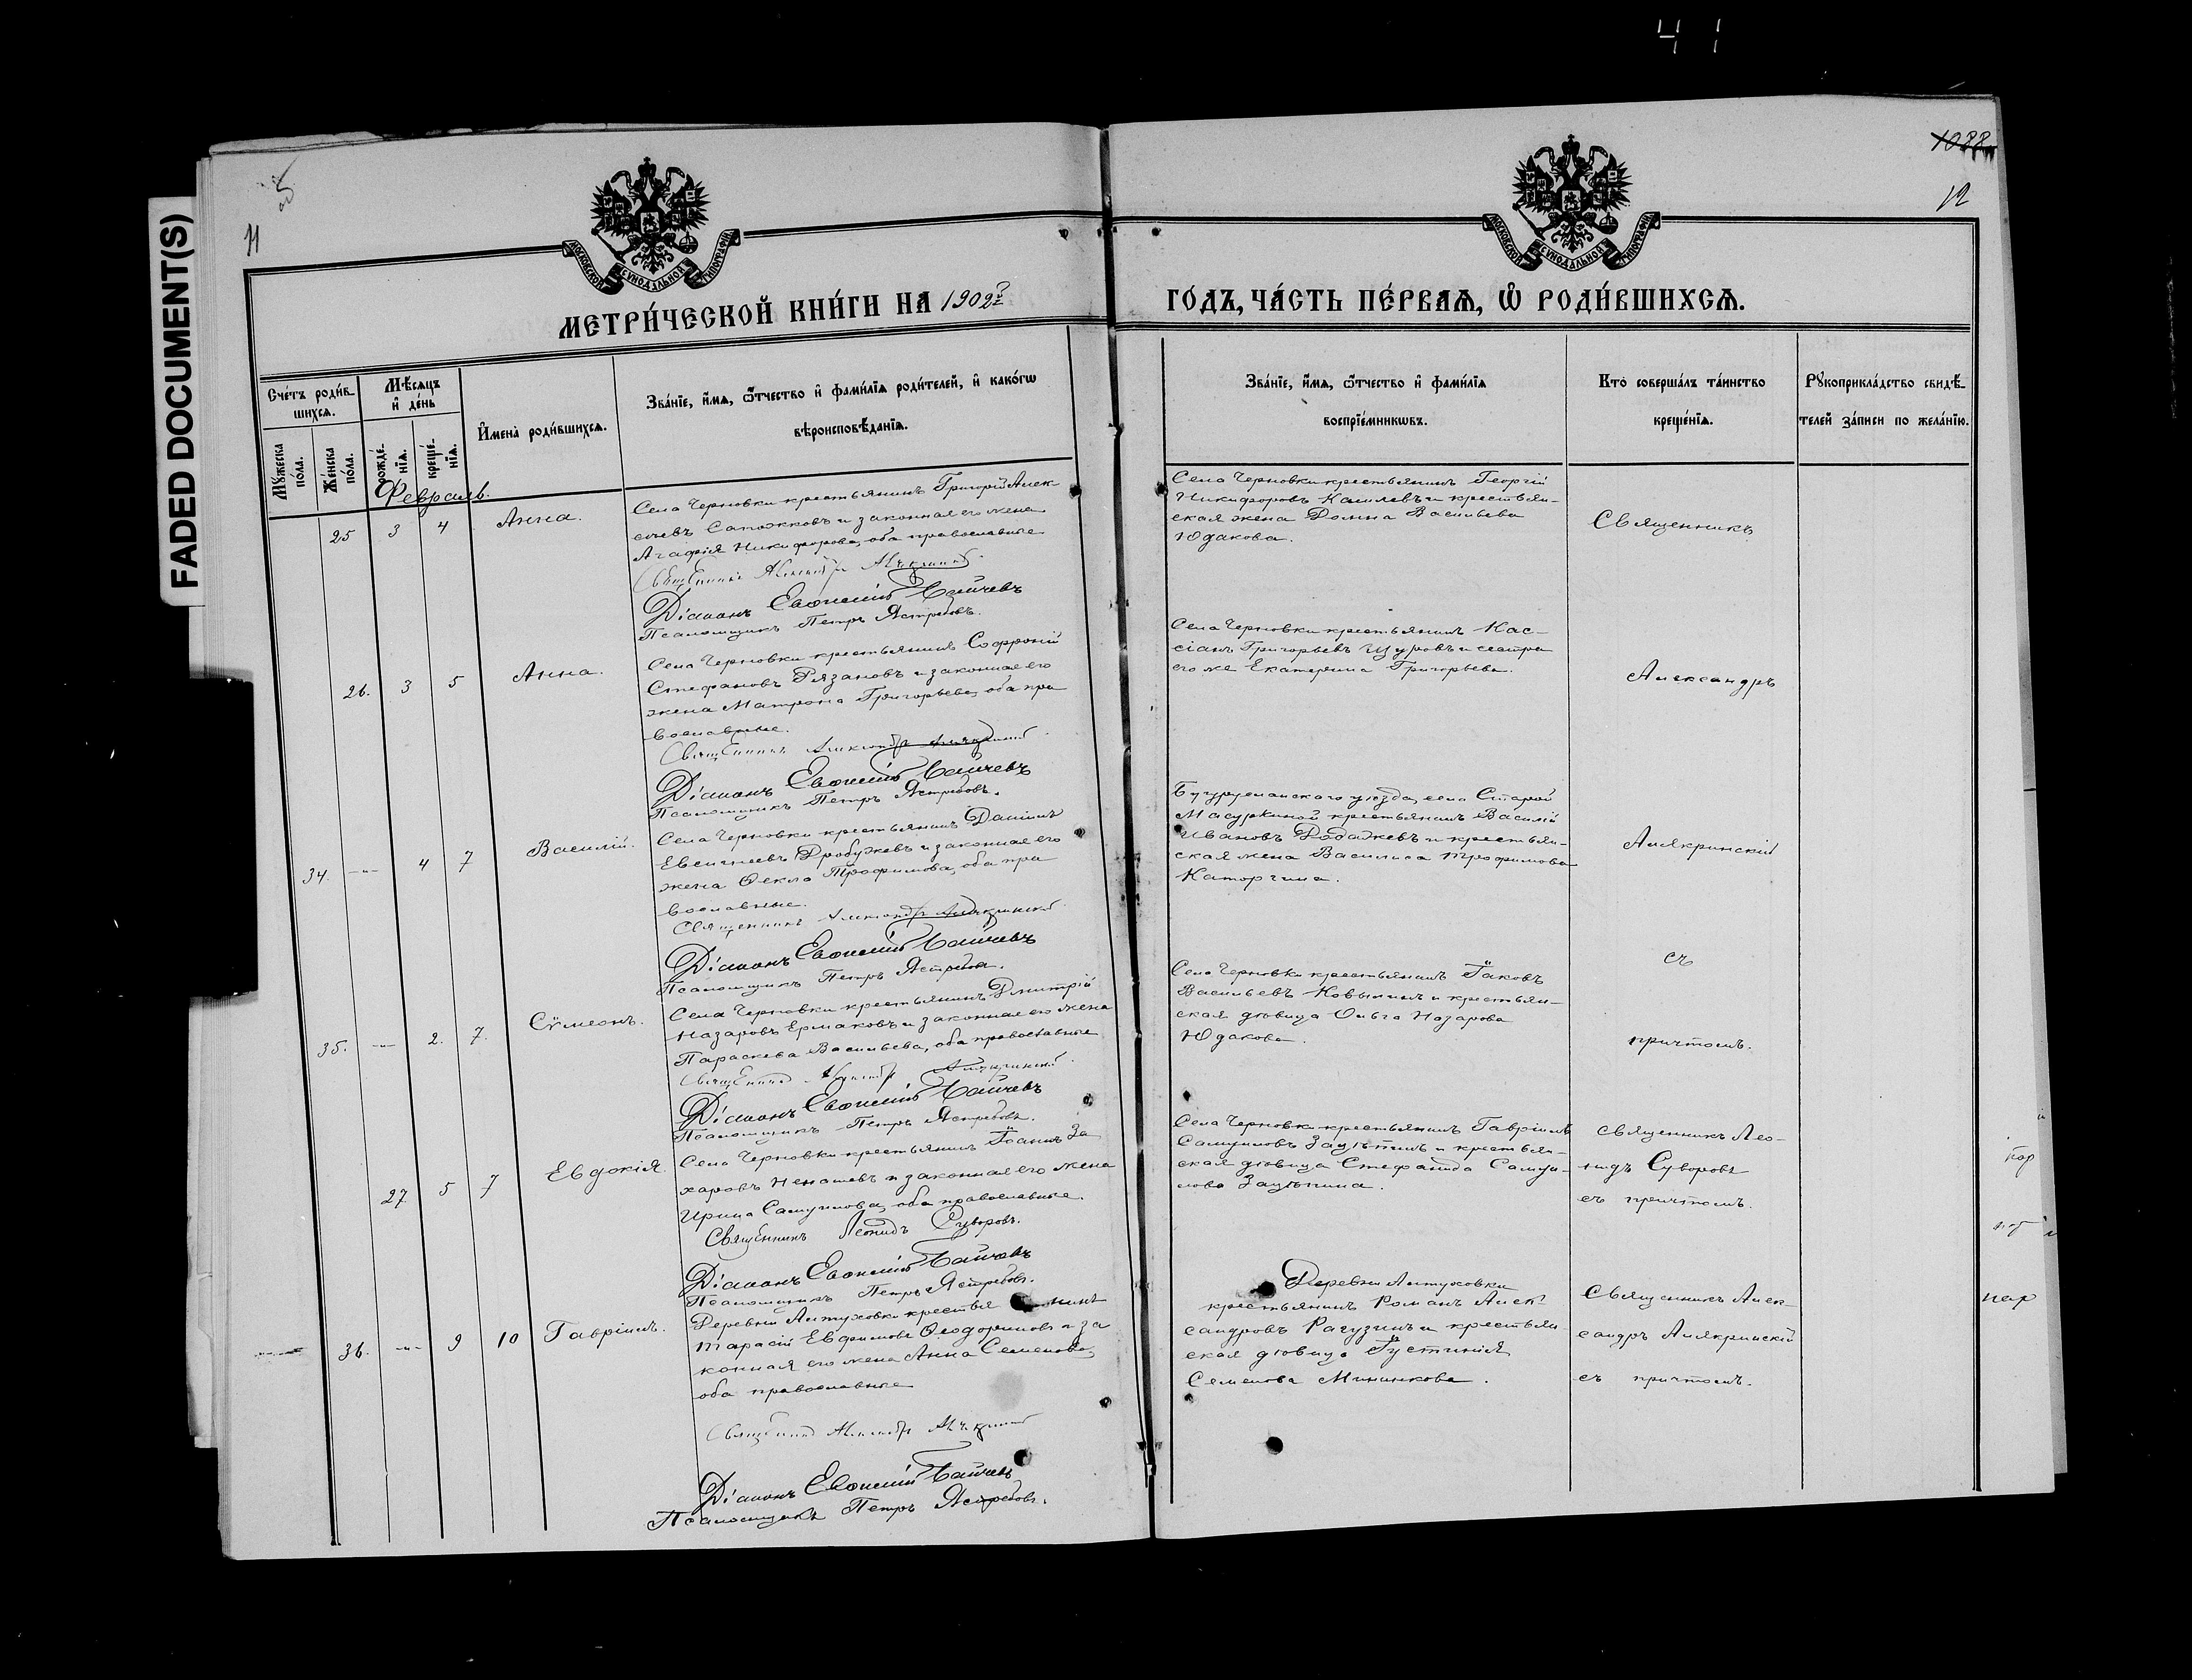 41
FADED DOCUMENT(S)
об
11
1088
12
МОСКОВСКОЙ СѴНОДАЛЬНОЙ ТИПОГРАФІИ
МОСКОВСКОЙ СѴНОДАЛЬНОЙ ТИПОГРАФІИ
МЕТРИ́ЧЕСКОЙ КНИ́ГИ НА 1902й
ГО́ДЪ, ЧА́СТЬ ПЕ́РВАѦ, Ѡ҆ РОДИ́ВШИХСѦ.
Счéтъ роди́в-
шихсѧ.
Мѣ́сѧцъ
и҆ де́нь
И҆мена̀ роди́вшихсѧ.
Зва́нїе, и҆́мѧ, ѻ҆́тчество и҆ фами́лїѧ роди́телей, и҆ како́гѡ
вѣроисповѣ́данїѧ.
Мꙋ́жеска
по́ла.
Же́нска
по́ла.
рожде́-
нїѧ.
креще́-
нїѧ.
Зва́нїе, и҆́мѧ, ѻ҆́тчество и҆ фами́лїѧ
воспрїе́мникѡвъ.
Кто̀ соверша́лъ та́инство
креще́нїѧ.
Рꙋкоприкла́дство свидѣ́-
телей за́писи по жела́нїю.
Февраль.
25 3 4 Анна.
Села Черновки крестьянинъ Григорій Алек-
сѣевъ Сапожковъ и законная его жена
Агафія Никифорова, оба православные
Священникъ Александръ Алякринскій
Діаконъ Евѳимій Чайчевъ
Псаломщикъ Петръ Ястребовъ.
Села Черновки крестьянинъ Георгій
Никифоровъ Камлевъ и крестьян-
ская жена Домна Васильева
Юдакова.
Священникъ
26. 3 5 Анна.
Села Черновки крестьянинъ Софроній
Стефановъ Рязановъ и законная его
жена Матрона Григорьева, оба пра
вославные.
Священникъ Александръ Алякринскій
Діаконъ Евѳимій Чайчевъ
Псаломщикъ Петръ Ястребовъ.
Села Черновки крестьянинъ Кас-
сіанъ Григорьевъ Щуровъ и сестра
его же Екатерина Григорьева.
Александръ
34. -"- 4 7 Василій.
Села Черновки крестьянинъ Даніилъ
Евсигнеевъ Дробужевъ и законная его
жена Ѳекла Трофимова, оба пра
вославные.
Священникъ Александръ Алякринскій
Діаконъ Евѳимій Чайчевъ
Псаломщикъ Петръ Ястребовъ.
Бугурусланского уѣзда, села Старой
Масуркиной крестьянинъ Василій
Ивановъ и крестьян-
ская жена Василиса Трофимова
Каторгина.
Алякринскій
35. -"- 2. 7. Сѵмеонъ.
Села Черновки крестьянинъ Дмитрій
Назаровъ Ермаковъ и законная его жена
Параскева Васильева, оба православные
Священникъ Александръ Алякринскій
Діаконъ Евѳимій Чайчевъ
Псаломщикъ Петръ Ястребовъ.
Села Черновки крестьянинъ Іаковъ
Васильевъ Ковылинъ и крестьян-
ская дѣвица Ольга Назарова
Юдакова.
съ
причтомъ.
27 5 7 Евдокія.
Села Черновки крестьянинъ Іоаннъ За
харовъ Ненашевъ и законная его жена
Ирина Самуилова, оба православные.
Священникъ Леонидъ Суворовъ.
Діаконъ Евѳимій Чайчевъ
Псаломщикъ Петръ Ястребовъ.
Села Черновки крестьянинъ Гавріилъ
Самуиловъ Зацѣпинъ и крестьян-
ская дѣвица Стефанида Самуи-
лова Зацѣпина.
Священникъ Лео-
нидъ Суворовъ
съ причтомъ.
36. -"- 9 10 Гавріилъ.
Деревни Алтуховки крестьянинъ
Тарасій Евфимовъ Ѳеодориновъ и за
конная его жена Анна Семенова,
оба православные
Священникъ Александръ Алякринскій
Діаконъ Евѳимій Чайчевъ
Псаломщикъ Петръ Ястребовъ.
Деревни Алтуховки
крестьянинъ Романъ Алек-
сандровъ Рагузинъ и крестьян-
ская дѣвица Іустинія
Семенова Мининкова.
Священникъ Алек-
сандръ Алякринскій
съ причтомъ.